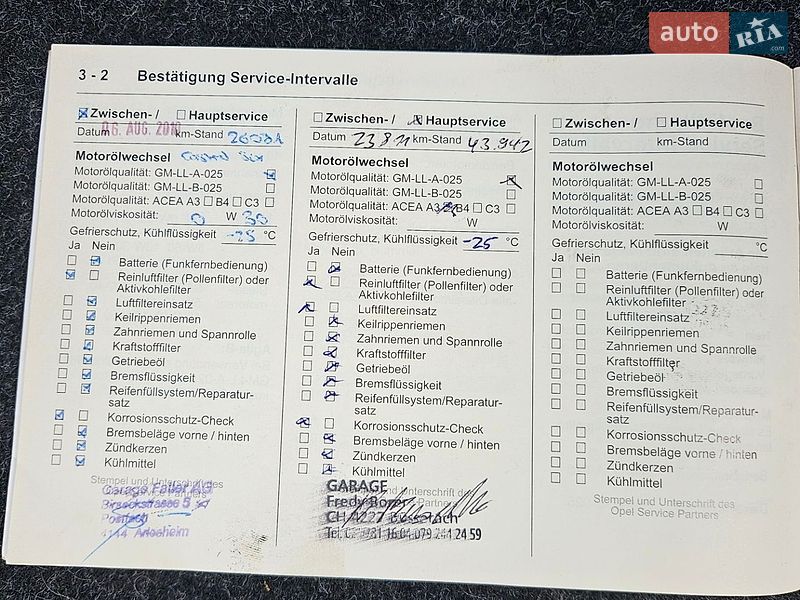 auto RIA.com
3 - 2 Bestätigung Service-Intervalle
Zwischen- / Hauptservice
06. AUG. 2010
Datum km-Stand
Motorölwechsel
Motorölqualität: GM-LL-A-025
Motorölqualität: GM-LL-B-025
Motorölqualität: ACEA A3 B4 C3
Motorölviskosität: 0 W 30
Gefrierschutz, Kühlflüssigkeit -25 °C
Ja Nein
Batterie (Funkfernbedienung)
Reinluftfilter (Pollenfilter) oder
Aktivkohlefilter
Luftfiltereinsatz
Keilrippenriemen
Zahnriemen und Spannrolle
Kraftstofffilter
Getriebeöl
Bremsflüssigkeit
Reifenfüllsystem/Reparatur-
satz
Korrosionsschutz-Check
Bremsbeläge vorne / hinten
Zündkerzen
Kühlmittel
Stempel und Unterschrift des
Garage Faller AG
Birseckstrasse 5
Postfach
4144 Arlesheim
Zwischen- / Hauptservice
Datum 23.8.11 km-Stand 43.942
Motorölwechsel
Motorölqualität: GM-LL-A-025
Motorölqualität: GM-LL-B-025
Motorölqualität: ACEA A3 B4 C3
Motorölviskosität: W
Gefrierschutz, Kühlflüssigkeit -25 °C
Ja Nein
Batterie (Funkfernbedienung)
Reinluftfilter (Pollenfilter) oder
Aktivkohlefilter
Luftfiltereinsatz
Keilrippenriemen
Zahnriemen und Spannrolle
Kraftstofffilter
Getriebeöl
Bremsflüssigkeit
Reifenfüllsystem/Reparatur-
satz
Korrosionsschutz-Check
Bremsbeläge vorne / hinten
Zündkerzen
Kühlmittel
GARAGE
Fredy Borer
079 244 24 59
Zwischen- / Hauptservice
Datum km-Stand
Motorölwechsel
Motorölqualität: GM-LL-A-025
Motorölqualität: GM-LL-B-025
Motorölqualität: ACEA A3 B4 C3
Motorölviskosität: W
Gefrierschutz, Kühlflüssigkeit °C
Ja Nein
Batterie (Funkfernbedienung)
Reinluftfilter (Pollenfilter) oder
Aktivkohlefilter
Luftfiltereinsatz
Keilrippenriemen
Zahnriemen und Spannrolle
Kraftstofffilter
Getriebeöl
Bremsflüssigkeit
Reifenfüllsystem/Reparatur-
satz
Korrosionsschutz-Check
Bremsbeläge vorne / hinten
Zündkerzen
Kühlmittel
Stempel und Unterschrift des
Opel Service Partners